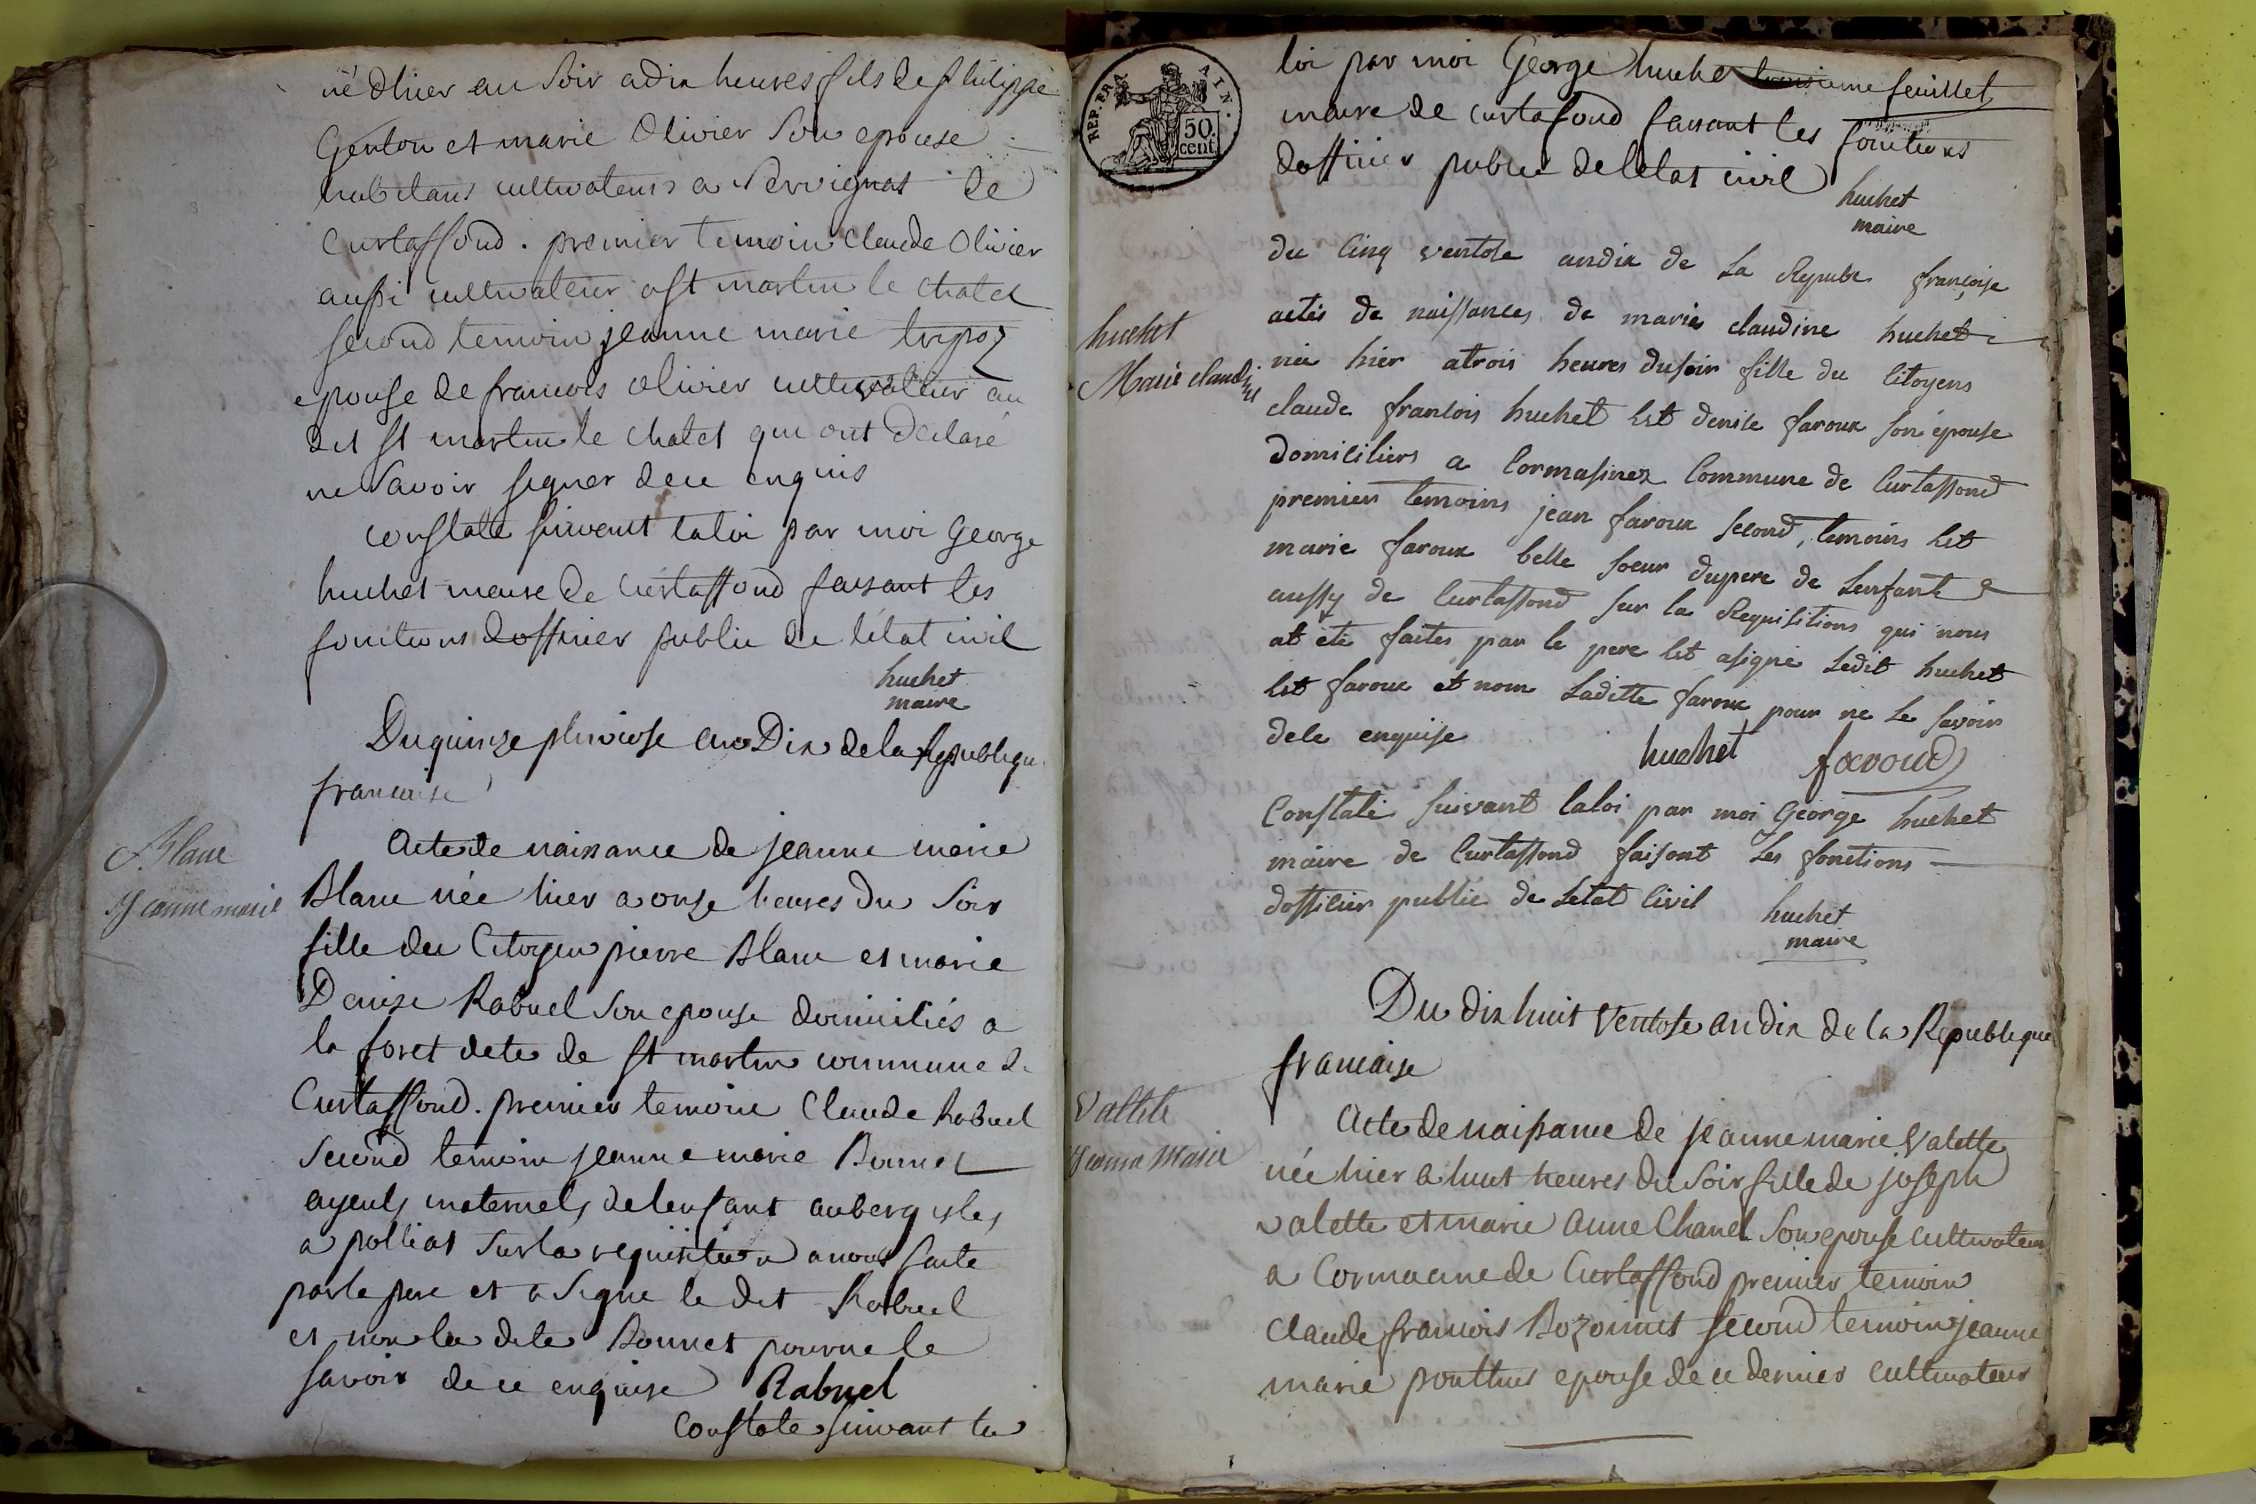 né d'hier au soir a dix heures fils de philippe
Genton et marie Olivier Son epouse
habitans cultivateurs a Servignat de
Curtaffond. premier temoin Claude Olivier
aussi cultivateur a St martin le chatel
second temoin jeanne marie tripoz
epouse de francois olivier cultivateur au
dit St martin le chatel qui ont declaré
ne savoir signer de ce enquis
constaté suivant la loi par moi George
huchet maire de Curtaffond faisant les
fonctions d'officier public de l'état civil
huchet
maire
Du quinze pluviose an Dix de la Republique
francaise
Blanc
Jeanne marie
Acte de naissance de jeanne marie
Blanc née hier a onze heures du Soir
fille du Citoyen pierre Blanc et marie
Denise Rabuel Son epouse domiciliés a
la foret dete de St martin commune de
Curtaffond. premier temoin Claude Rabuel
Second temoin jeanne marie Bonnet
ayeuls maternels de lenfant aubergistes
a polliat Sur la requisition a nous faite
par le pere et a Signé le dit Rabuel
et non la dite Bonnet pour ne le
savoir de ce enquise Rabuel
Constaté suivant la
REP. FRA. AIN.
50. cent.
loi par moi George huchet troisieme feuillet
maire de curtafond faisant les fonctions
dofficier public de letat civil
huchet
maire
du Cinq ventose an dix de La Republ françoise
huchet
Marie claudine
actes de naissances de maries claudine huchet
née hier a trois heures du soir fille du Citoyens
claude francois huchet Est denise faroux son épouse
domiciliers a Cormasinez Commune de Curtaffond
premier temoins jean faroux second, temoins Est
marie faroux belle soeur du pere de Lenfant
aussy de Curtaffond sur la Requisitions qui nous
at eté faites par le pere Est asigné Ledit huchet
Est faroux et nom Laditte faroux pour ne Le savoir
de ce enquise
huchet faroud
Constaté suivant la loi par moi George huchet
maire de Curtaffond faisont Les fonctions
dofficier public de Letat Civil
huchet
maire
Du dix huit Ventose an dix de la Republique
francaise
Vallete
Jeanne Marie
Acte de naissance de jeanne marie Valette
née hier a huit heures du Soir fille de joseph
valette et marie anne Chanel Son epouse cultivateurs
a Cormacine de Curtaffond premier temoin
Claude francois Bozonnet second temoin jeanne
marie ponthus epouse de ce dernier cultivateurs